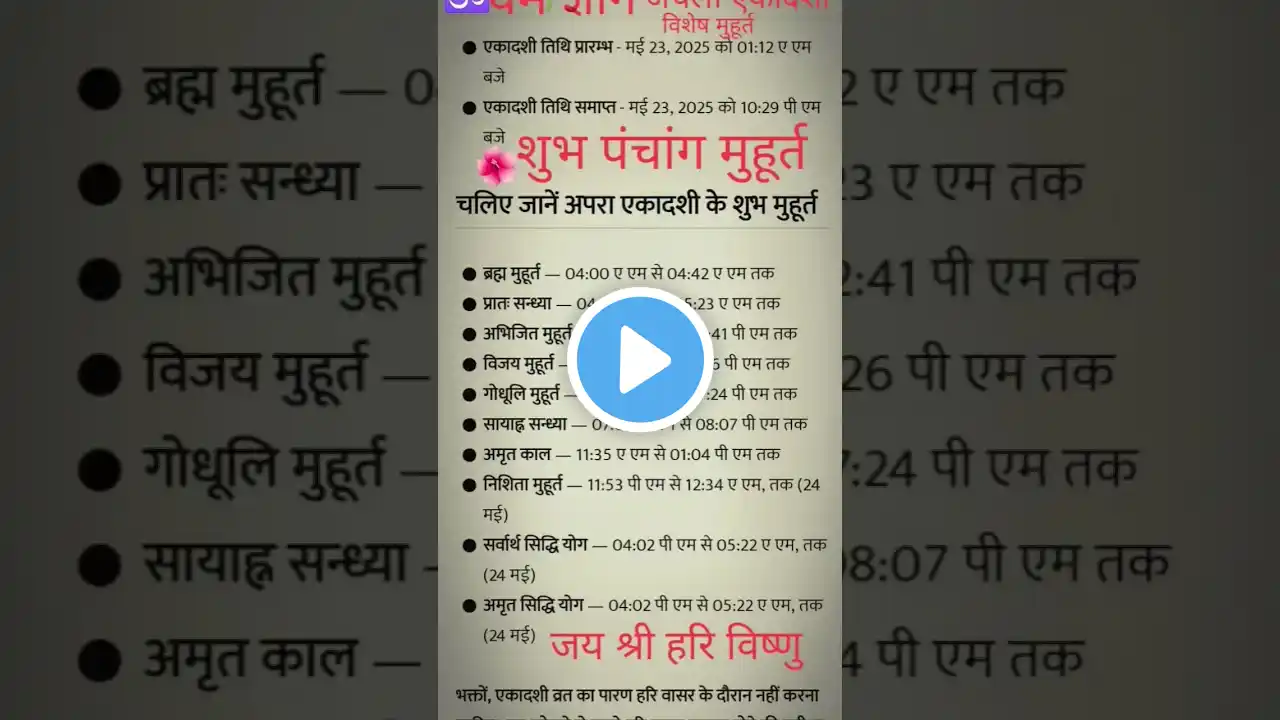 ॐ
अचला एकादशी
विशेष मुहूर्त
● एकादशी तिथि प्रारम्भ - मई 23, 2025 को 01:12 ए एम
बजे
● एकादशी तिथि समाप्त - मई 23, 2025 को 10:29 पी एम
बजे
शुभ पंचांग मुहूर्त
चलिए जानें अपरा एकादशी के शुभ मुहूर्त
● ब्रह्म मुहूर्त — 04:00 ए एम से 04:42 ए एम तक
● प्रातः सन्ध्या — 04 5:23 ए एम तक
● अभिजित मुहूर्त 41 पी एम तक
● विजय मुहूर्त — 6 पी एम तक
● गोधूलि मुहूर्त — :24 पी एम तक
● सायाह्न सन्ध्या — 07 से 08:07 पी एम तक
● अमृत काल — 11:35 ए एम से 01:04 पी एम तक
● निशिता मुहूर्त — 11:53 पी एम से 12:34 ए एम, तक (24
मई)
● सर्वार्थ सिद्धि योग — 04:02 पी एम से 05:22 ए एम, तक
(24 मई)
● अमृत सिद्धि योग — 04:02 पी एम से 05:22 ए एम, तक
(24 मई)
जय श्री हरि विष्णु
भक्तों, एकादशी व्रत का पारण हरि वासर के दौरान नहीं करना
● ब्रह्म मुहूर्त — 0 2 ए एम तक
● प्रातः सन्ध्या — 23 ए एम तक
● अभिजित मुहूर्त 2:41 पी एम तक
● विजय मुहूर्त — 26 पी एम तक
● गोधूलि मुहूर्त — 7:24 पी एम तक
● सायाह्न सन्ध्या - 08:07 पी एम तक
● अमृत काल — 4 पी एम तक